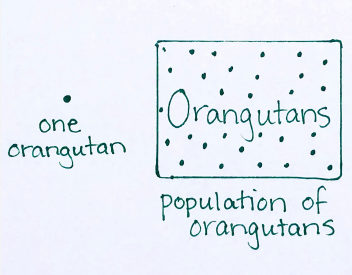 one
orangutan
Orangutans
population of
orangutans